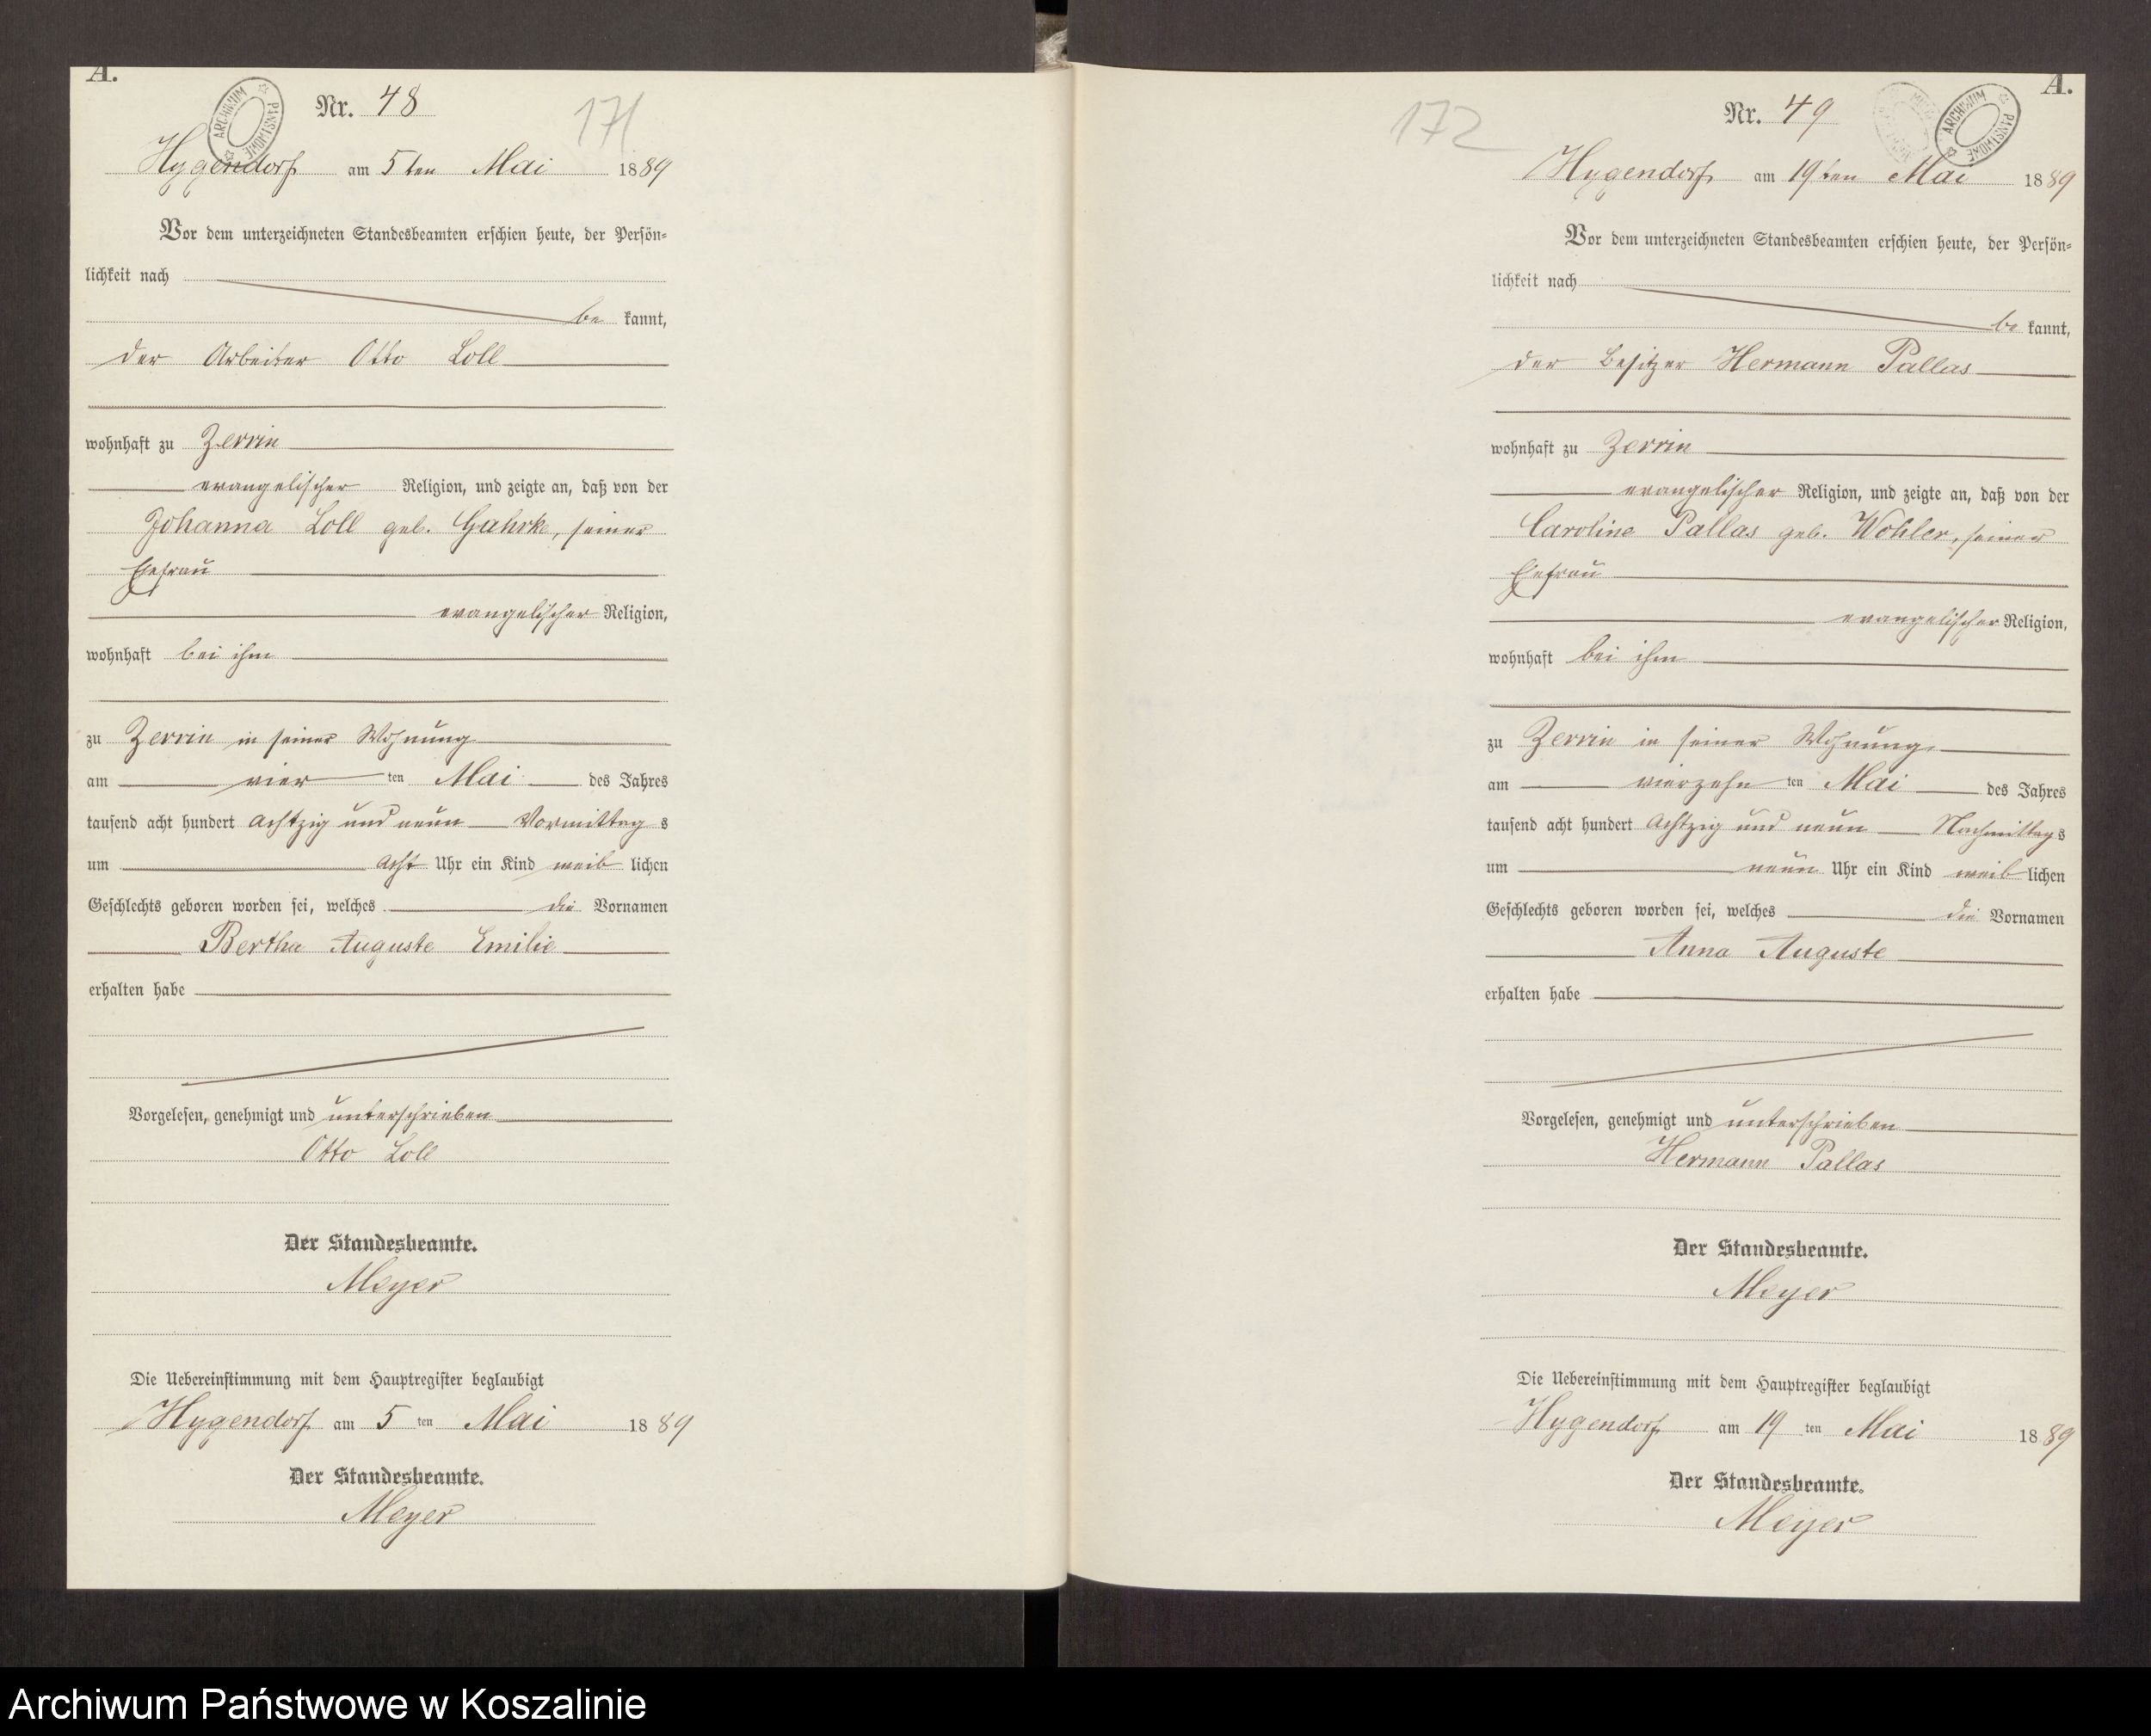 A.
ARCHIWUM PAŃSTWOWE
Nr. 48
171
Hygendorf am 5ten Mai 1889
Vor dem unterzeichneten Standesbeamten erschien heute, der Persön-
lichkeit nach
be kannt,
der Arbeiter Otto Loll
wohnhaft zu Zerrin
evangelischer Religion, und zeigte an, daß von der
Johanna Loll geb. Gahrke, seiner
Ehefrau
evangelischer Religion,
wohnhaft bei ihm
zu Zerrin in seiner Wohnung
am vier ten Mai des Jahres
tausend acht hundert achtzig und neun Vormittag s
um acht Uhr ein Kind weib lichen
Geschlechts geboren worden sei, welches die Vornamen
Bertha Auguste Emilie
erhalten habe
Vorgelesen, genehmigt und unterschrieben
Otto Loll
Der Standesbeamte.
Meyer
Die Uebereinstimmung mit dem Hauptregister beglaubigt
Hygendorf am 5 ten Mai 1889
Der Standesbeamte.
Meyer
A.
ARCHIWUM PAŃSTWOWE
172
Nr. 49
Hygendorf am 19ten Mai 1889
Vor dem unterzeichneten Standesbeamten erschien heute, der Persön-
lichkeit nach
be kannt,
der Besitzer Hermann Pallas
wohnhaft zu Zerrin
evangelischer Religion, und zeigte an, daß von der
Caroline Pallas geb. Wohler, seiner
Ehefrau
evangelischer Religion,
wohnhaft bei ihm
zu Zerrin in seiner Wohnung
am vierzehn ten Mai des Jahres
tausend acht hundert achtzig und neun Nachmittag s
um neun Uhr ein Kind weib lichen
Geschlechts geboren worden sei, welches die Vornamen
Anna Auguste
erhalten habe
Vorgelesen, genehmigt und unterschrieben
Hermann Pallas
Der Standesbeamte.
Meyer
Die Uebereinstimmung mit dem Hauptregister beglaubigt
Hygendorf am 19 ten Mai 1889
Der Standesbeamte.
Meyer
Archiwum Państwowe w Koszalinie